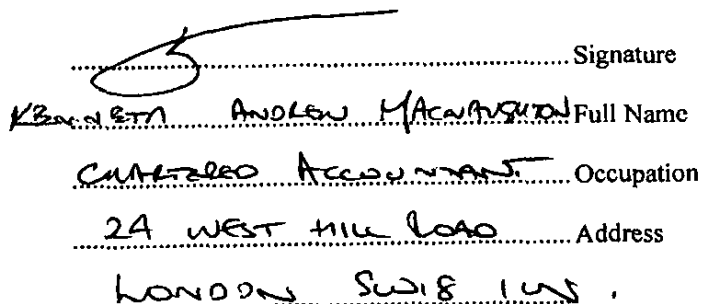 Signature
KENNETH ANDREW MACNAUGHTON Full Name
CHARTERED ACCOUNTANT Occupation
24 WEST HILL ROAD Address
LONDON SW18